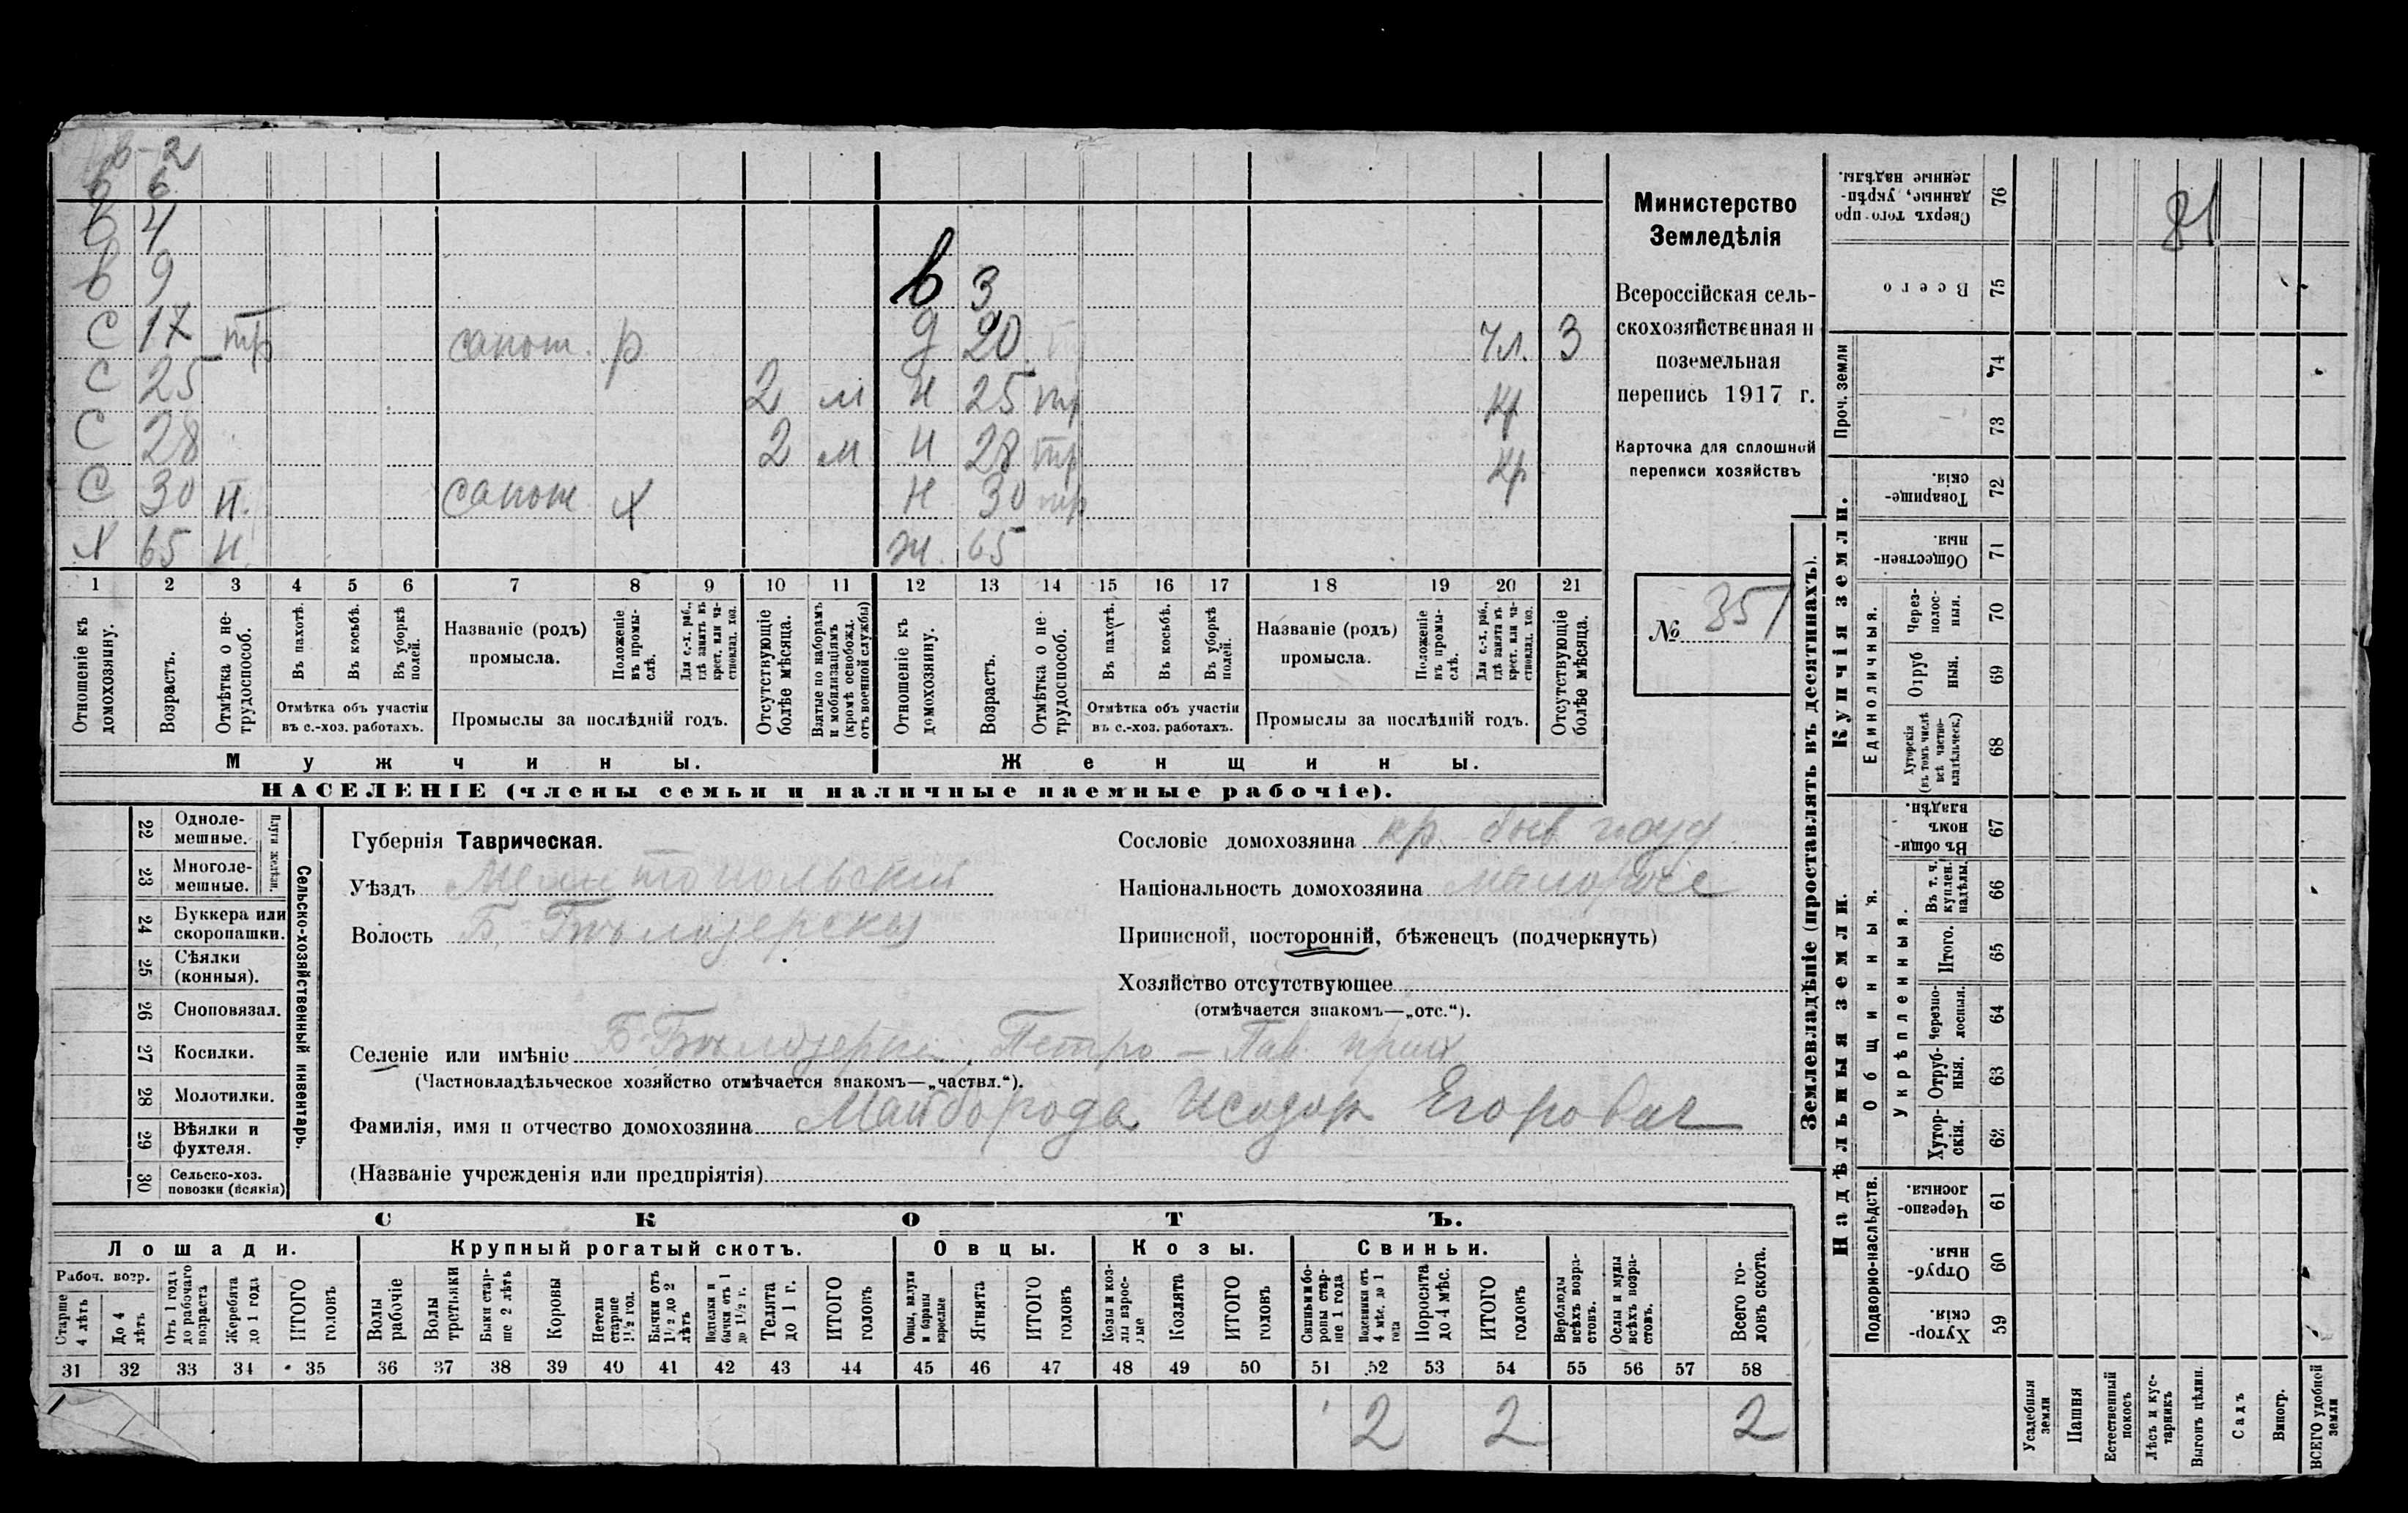 в-2
в 6
в 4
в 9
в 3
с 17 тр сапож. р
д 20
чл. 3
с 25 2 м
н 25 тр
кр
с 28 2 м
н 28 тр
кр
с 30 н. сапож х
н 30 тр
х 65 н.
ж. 65
1 2 3 4 5 6 7 8 9 10 11 12 13 14 15 16 17 18 19 20 21
Отношеніе къ домохозяину.
Возрастъ.
Отмѣтка о не-трудоспособ.
Въ пахотѣ.
Въ косьбѣ.
Въ уборкѣ полей.
Отмѣтка объ участіи въ с.-хоз. работахъ.
Названіе (родъ) промысла.
Положеніе въ промы-слѣ.
Для с.-х. раб., гдѣ занятъ въ крест. или ча-стновлад. хоз.
Промыслы за послѣдній годъ.
Отсутствующіе болѣе мѣсяца.
Взятые по наборамъ и мобилизаціямъ (кромѣ освобожд. отъ военной службы)
Отношеніе къ домохозяину.
Возрастъ.
Отмѣтка о не-трудоспособ.
Въ пахотѣ.
Въ косьбѣ.
Въ уборкѣ полей.
Отмѣтка объ участіи въ с.-хоз. работахъ.
Названіе (родъ) промысла.
Положеніе въ промы-слѣ.
Для с.-х. раб., гдѣ занята въ крест. или ча-стновлад. хоз.
Промыслы за послѣдній годъ.
Отсутствующіе болѣе мѣсяца.
Мужчины.
Женщины.
НАСЕЛЕНІЕ (члены семьи и наличные наемные рабочіе).
Министерство
Земледѣлія
Всероссійская сель-
скохозяйственная и
поземельная
перепись 1917 г.
Карточка для сплошной
переписи хозяйствъ
№ 351
22 Одноле-мешные.
23 Многоле-мешные.
Плуги желѣзн.
24 Буккера или скоропашки.
25 Сѣялки (конныя).
26 Сноповязал.
27 Косилки.
28 Молотилки.
29 Вѣялки и фухтеля.
30 Сельско-хоз. повозки (всякія)
Сельско-хозяйственный инвентарь.
Губернія Таврическая.
Уѣздъ Мелитопольский
Волость Б. Бѣлозерская
Сословіе домохозяина кр. быв.
Національность домохозяина
Приписной, посторонній, бѣженецъ (подчеркнуть)
Хозяйство отсутствующее
(отмѣчается знакомъ—„отс.“).
Селеніе или имѣніе Б-Бѣлозерка, Петро-Пав. прих
(Частновладѣльческое хозяйство отмѣчается знакомъ—„частвл.“).
Фамилія, имя и отчество домохозяина Майборода Исидор Егорович
(Названіе учрежденія или предпріятія)
СКОТЪ.
Лошади. Крупный рогатый скотъ. Овцы. Козы. Свиньи.
Рабоч. возр.
Старше 4 лѣтъ
До 4 лѣтъ
Отъ 1 года до рабочаго возраста
Жеребята до 1 года
ИТОГО головъ
Волы рабочіе
Волы третьяки
Быки стар-ше 2 лѣтъ
Коровы
Нетели старше 1½ год.
Бычки отъ 1½ до 2 лѣтъ
Подтелки и бычки отъ 1 до 1½ г.
Телята до 1 г.
ИТОГО головъ
Овцы, валухи и бараны взрослые
Ягнята
ИТОГО головъ
Козы и коз-лы взрос-лые
Козлята
ИТОГО головъ
Свиньи и бо-ровы стар-ше 1 года
Подсвинки отъ 4 мѣс. до 1 года
Поросята до 4 мѣс.
ИТОГО головъ
Верблюды всѣхъ возра-стовъ.
Ослы и мулы всѣхъ возра-стовъ.
Всего го-ловъ скота.
31 32 33 34 35 36 37 38 39 40 41 42 43 44 45 46 47 48 49 50 51 52 53 54 55 56 57 58
2 2 2
Землевладѣніе (проставлять въ десятинахъ).
Купчія земли.
Надѣльныя земли.
Сверхъ того про-данные, укрѣп-ленные надѣлы. 76
81
Всего 75
Проч. земли 74
73
Товарище-скія. 72
Обществен-ныя. 71
Единоличныя.
Через-полос-ныя. 70
Отруб-ныя. 69
Хуторскія (въ томъ числѣ всѣ частно-владѣльческ.) 68
Общинныя.
Въ общи-номъ владѣн. 67
Укрѣпленныя.
Въ т. ч. куплен. надѣлы. 66
Итого. 65
Черезпо-лосныя. 64
Отруб-ныя. 63
Хутор-скія. 62
Подворно-наслѣдств.
Черезпо-лосныя. 61
Отруб-ныя. 60
Хутор-скія. 59
Усадебныя земли
Пашня
Естественный покосъ
Лѣсъ и кус-тарникъ
Выгонъ цѣлин.
Садъ
Виногр.
ВСЕГО удобной земли